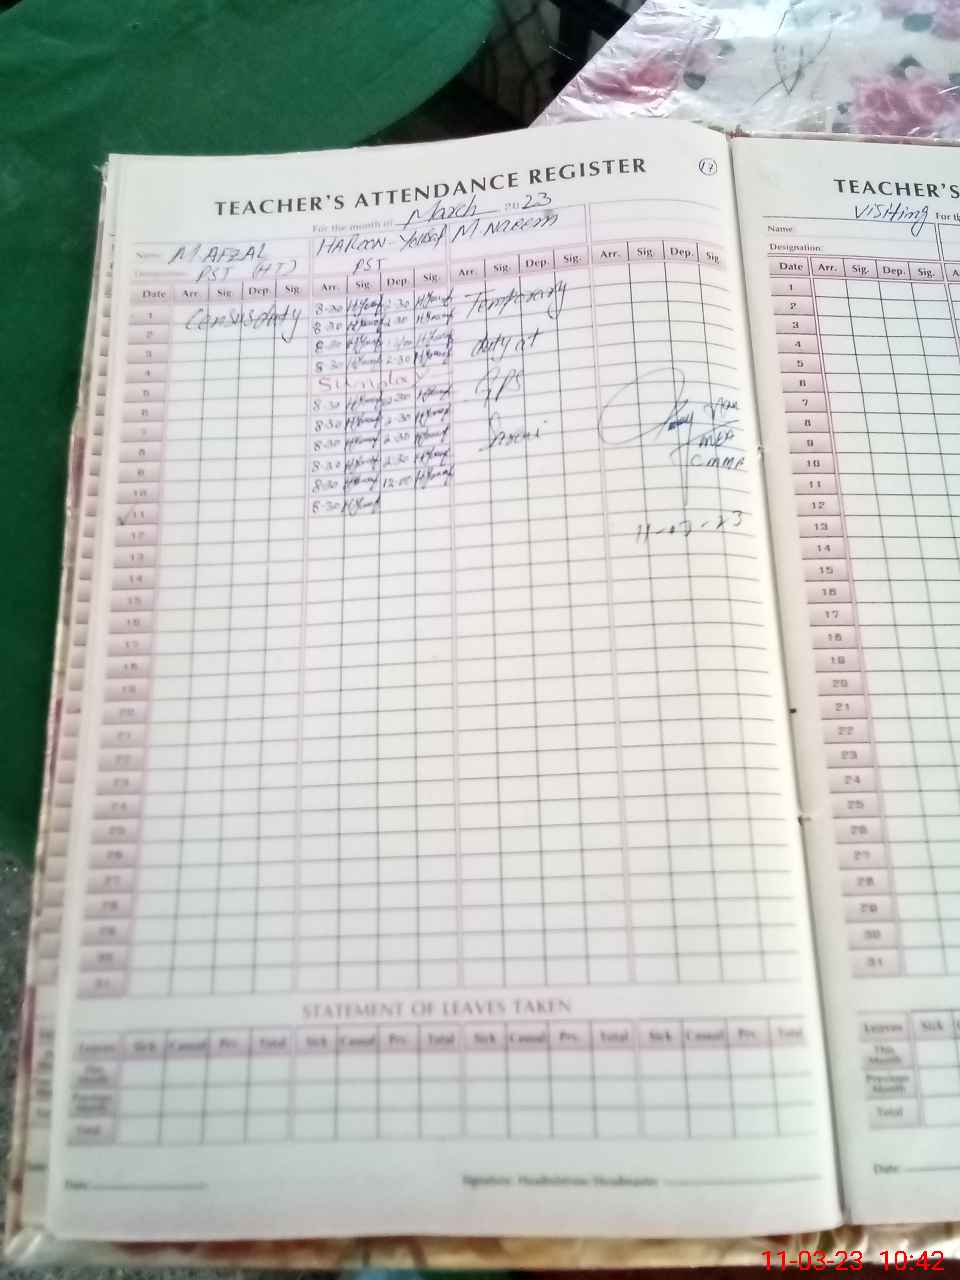 TEACHER'S ATTENDANCE REGISTER
17
For the month of March 2023
Name: M AFZAL HAROON-Yousaf M Naeem
PST (HT) PST
Date Arr. Sig. Dep. Sig. Arr. Sig. Dep. Sig. Arr. Sig. Dep. Sig. Arr. Sig. Dep. Sig
1 Census duty 8-30 HYousaf 2-30 HYousaf Temporary
2 8-30 HYousaf 2-30 HYousaf
3 8-30 HYousaf HYousaf duty at
4 8-30 HYousaf 2-30 HYousaf
5 Sunday GPS
6 8-30 HYousaf 2-30 HYousaf
7 8-30 HYousaf 2-30 HYousaf
8 8-30 HYousaf 2-30 HYousaf
9 8-30 HYousaf 2-30 HYousaf
10 8-30 HYousaf 12-00 HYousaf
11 8-30 HYousaf
MEA
CMMP
11-03-23
12
13
14
15
16
17
18
19
20
21
22
23
24
25
26
27
28
29
30
31
STATEMENT OF LEAVES TAKEN
Leaves Sick Casual Prv. Total Sick Casual Prv. Total Sick Casual Prv. Total Sick Casual Prv. Total
This Month
Previous Month
Total
Date:
TEACHER'S
Visiting For th
Name:
Designation:
Date Arr. Sig. Dep. Sig. A
1
2
3
4
5
6
7
8
9
10
11
12
13
14
15
16
17
18
19
20
21
22
23
24
25
26
27
28
29
30
31
Leaves Sick
This Month
Previous Month
Total
Date:
11-03-23 10:42